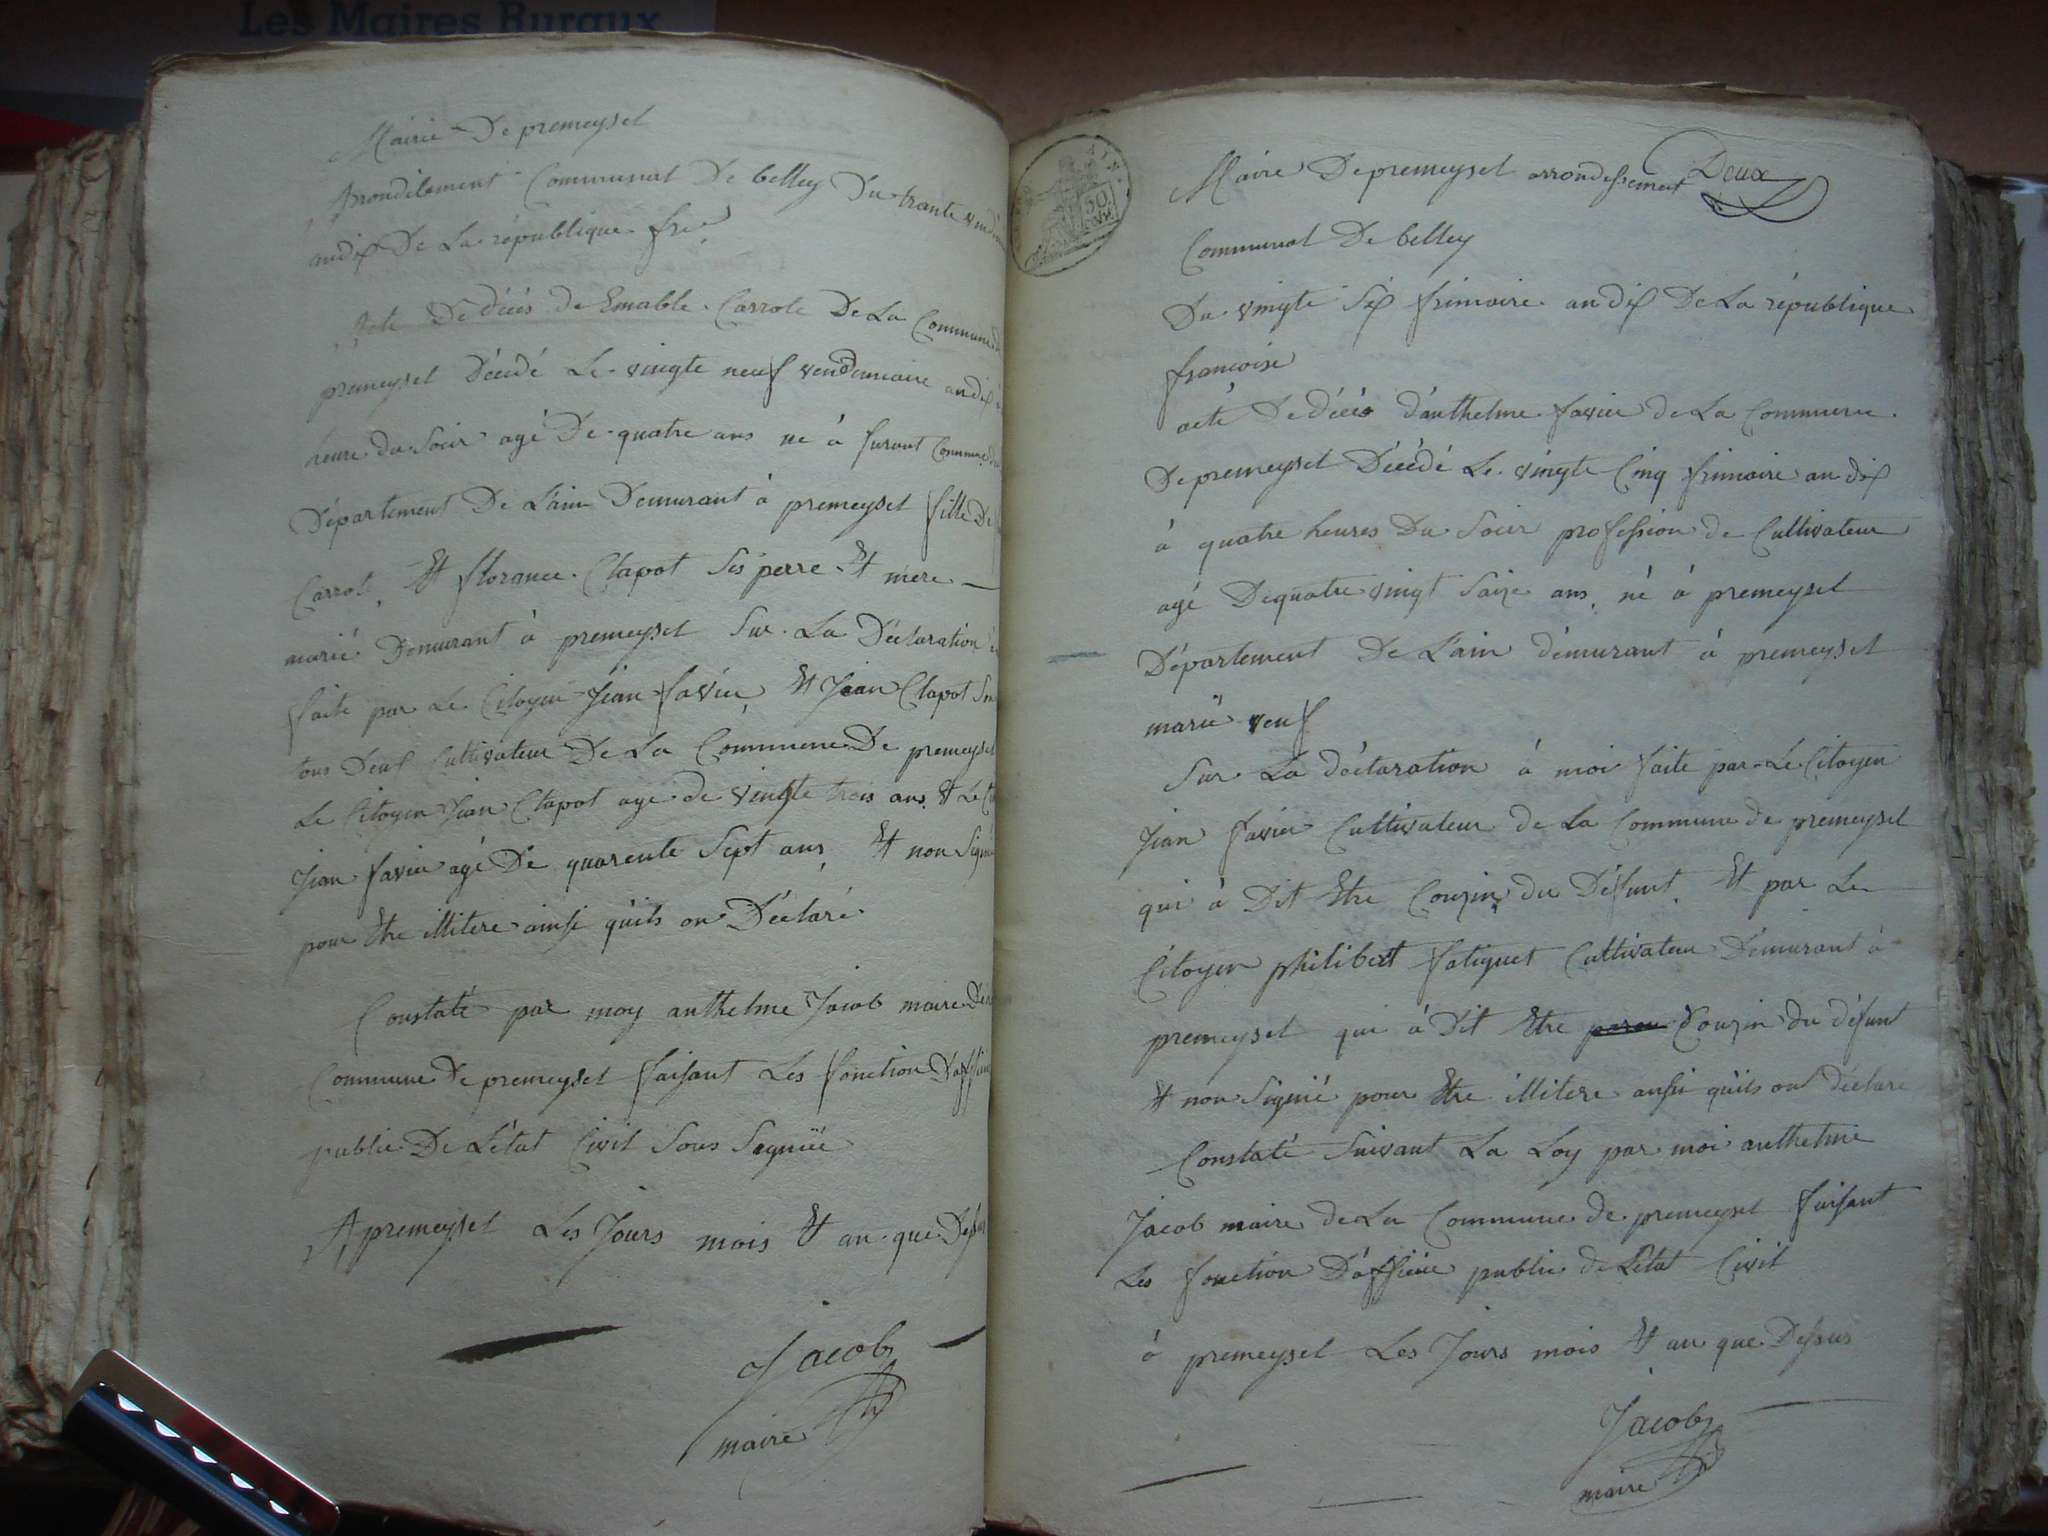 Les Maires Ruraux
Mairie De premeysel
Arrondisement Communal De belley Du trante
an dix De La république fr^se
Acte De décès de Emable Carrote De La Commune
premeysel Décédé Le vingte neuf vendemiaire an dix
heure du Soir agé De quatre ans né à furant Commune
Département De L'ain Demurant à premeysel fille De
Carrot Et florance Clapot Ses perre Et mere
marié Demurant à premeysel Sur La Déclaration
faite par Le Citoyen Jean favier Et Jean Clapot
tous Deux Cultivateur De La Commune De premeysel
Le Citoyen Jean Clapot agé de vingte trois ans Et Le
Jean favier agé De quarente Sept ans Et non Signé
pour Etre illitere ainsi quils on Déclaré
Constaté par moy anthelme Jacob maire De
Commune De premeysel faisant Les fonction D'
public De L'état Civil Sous Signiié
A premeysel Les Jours mois Et an que
Jacob
maire
50
Maire De premeysel arrondessement Deux
Communal De belley
Du vingte Six frimaire an dix De La république
francoise
acte De décès d'anthelme favier de La Commune
De premeysel Décédé Le vingte Cinq frimaire an dix
à quatre heures Du Soir profession de Cultivateur
agé De quatre vingt Saize ans né à premeysel
Département De L'ain démurant à premeysel
marié veuf
Sur La déclaration à moi faite par Le Citoyen
Jean favier Cultivateur de La Commune de premeysel
qui à Dit Etre Couzin du Défunt Et par Le
Citoyen philibert fatiguet Cultivateur Démurant à
premeysel qui à Dit Etre Couzin du défunt
Et non Signié pour Etre illitere ansi quils on déclaré
Constaté Suivant La Loy par moi anthelme
Jacob maire de La Commune de premeysel faisant
Les fonction D'officié public de L'état Civil
à premeysel Les Jours mois Et an que Dessus
Jacob
maire